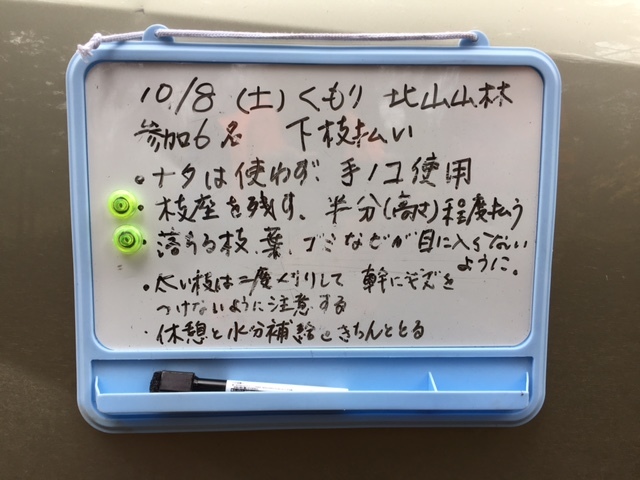 10/8 (土) くもり 北山山林
参加6名 下枝払い
・ナタは使わず、手ノコ使用
・枝座を残す、半分(高さ)程度払う
・落ちる枝、葉、ゴミなどが目に入らない
ように。
・太い枝は二度ギリして 幹にキズを
つけないように注意する
・休憩と水分補給をきちんととる